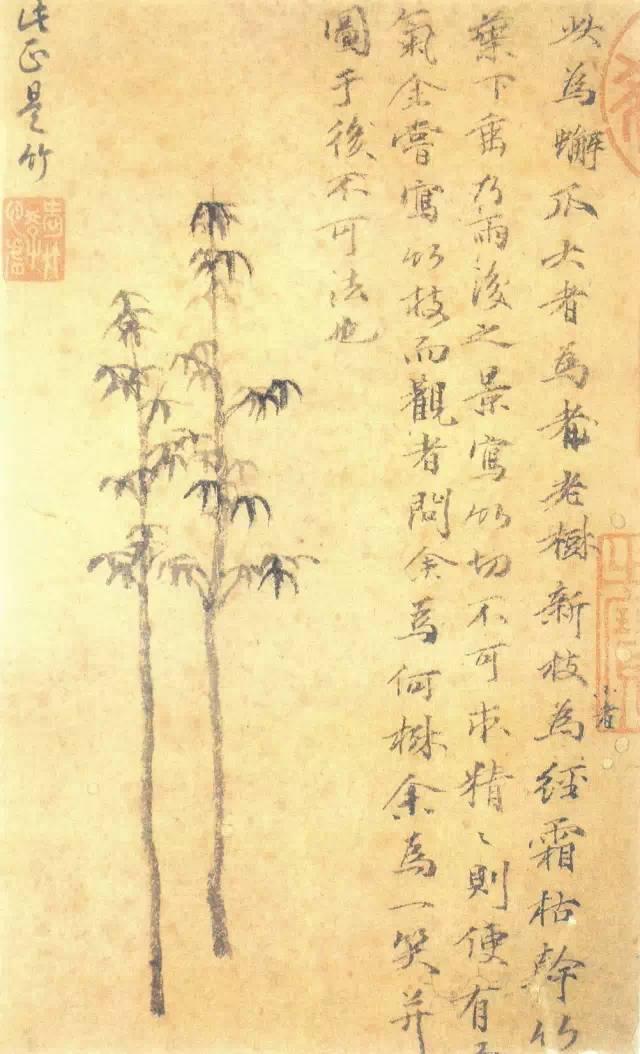 此為蠏爪大者為老樹新枝為經霜枯幹竹
小者
葉下垂乃雨後之景寫竹切不可求精〻則便有
氣余嘗寫竹枝而觀者問余為何樹余為一笑并
圖于後不可法也
此正是竹